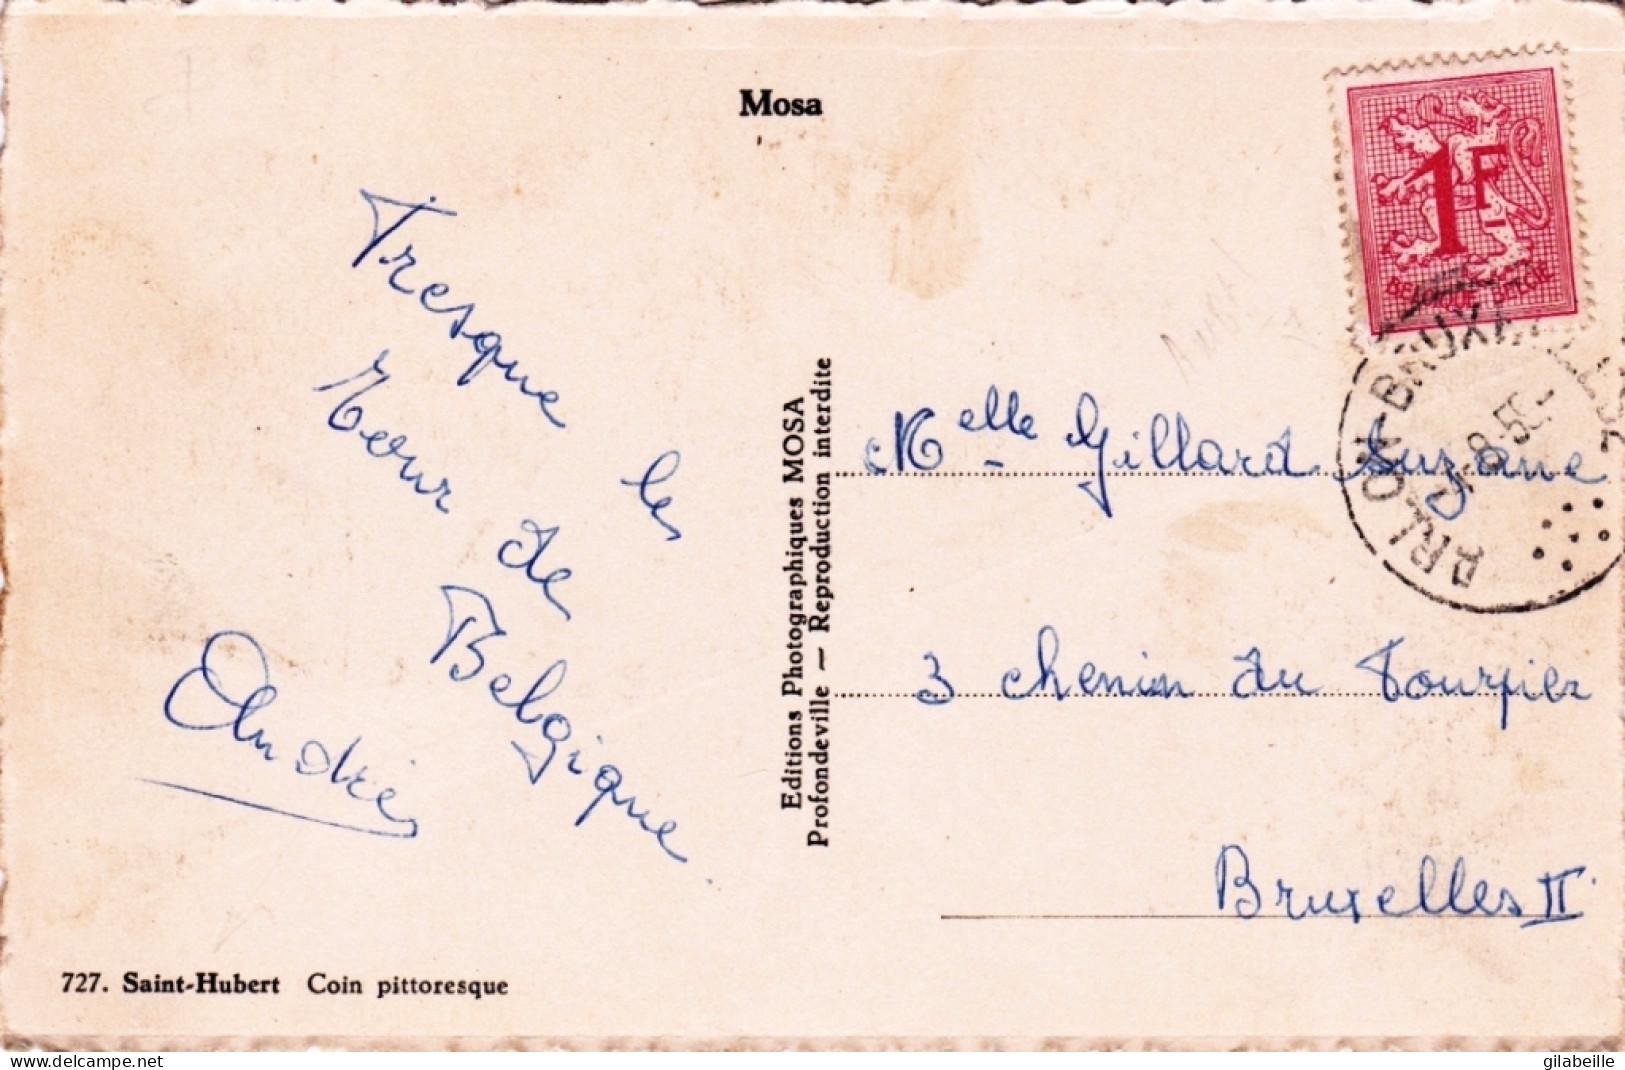 Mosa
Tresque le
tour de
Belgique
André
727. Saint-Hubert Coin pittoresque
Editions Photographiques MOSA
Profondeville — Reproduction interdite
1F
BELGIQUE BELGIE
ARLON-BRUXELLES 2
Melle Gillard Suzane
3 chenin du Tourpier
Bruxelles II
delcampe.net
gilabeille